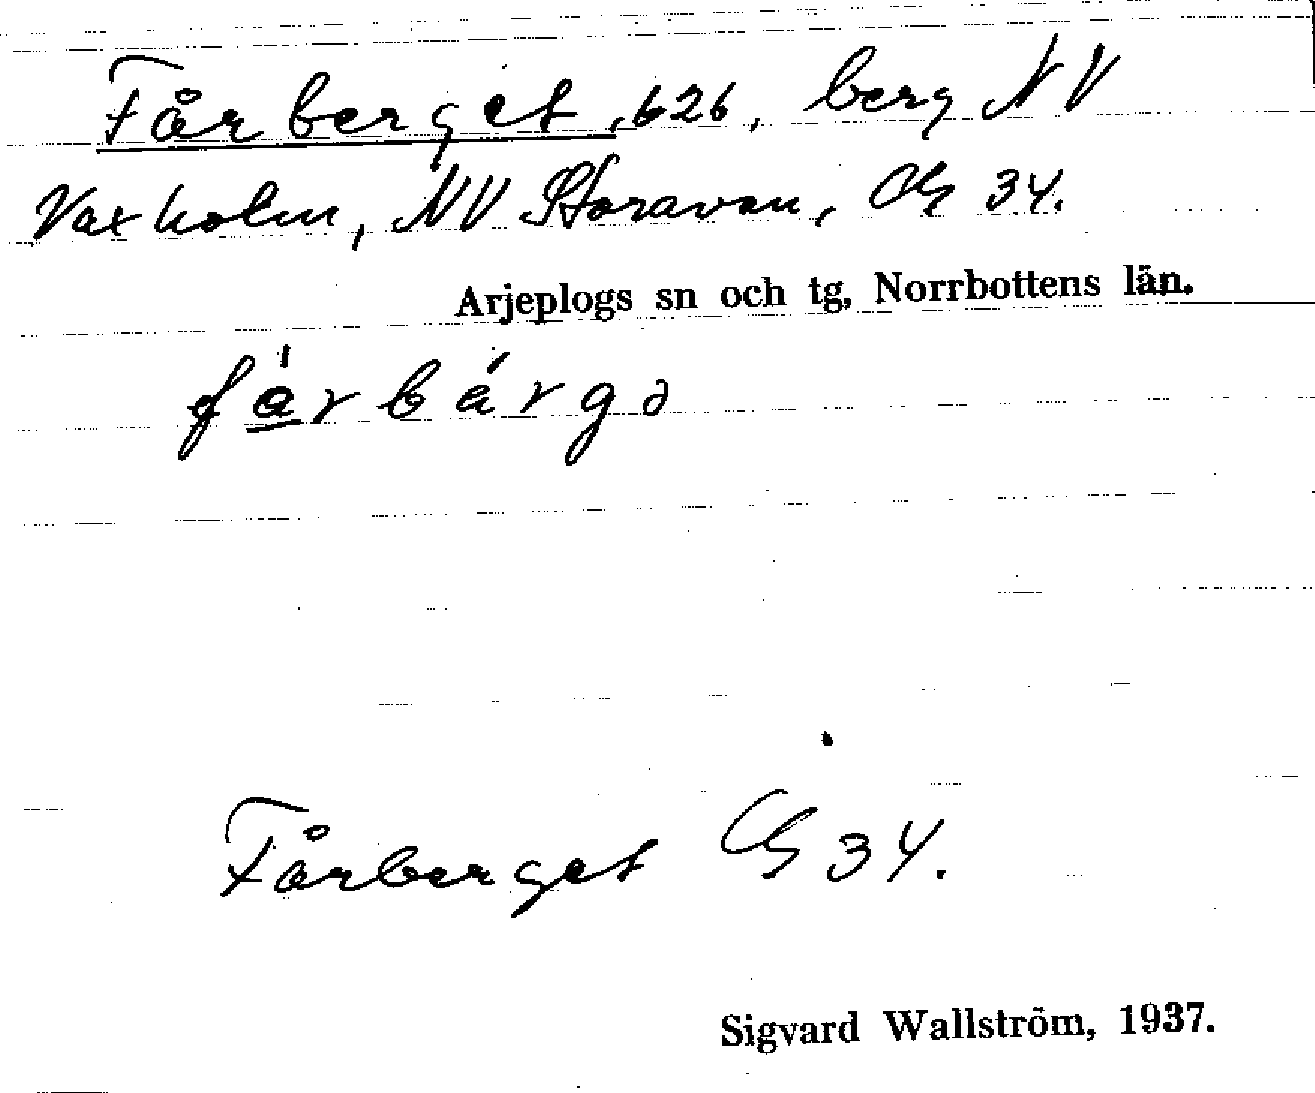 Fårberget, 626, berg NV
Vaxholm, NV Storavan, Gs 34.
Arjeplogs sn och tg, Norrbottens län.
fárbárgə
Fårberget Gs 34.
Sigvard Wallström, 1937.